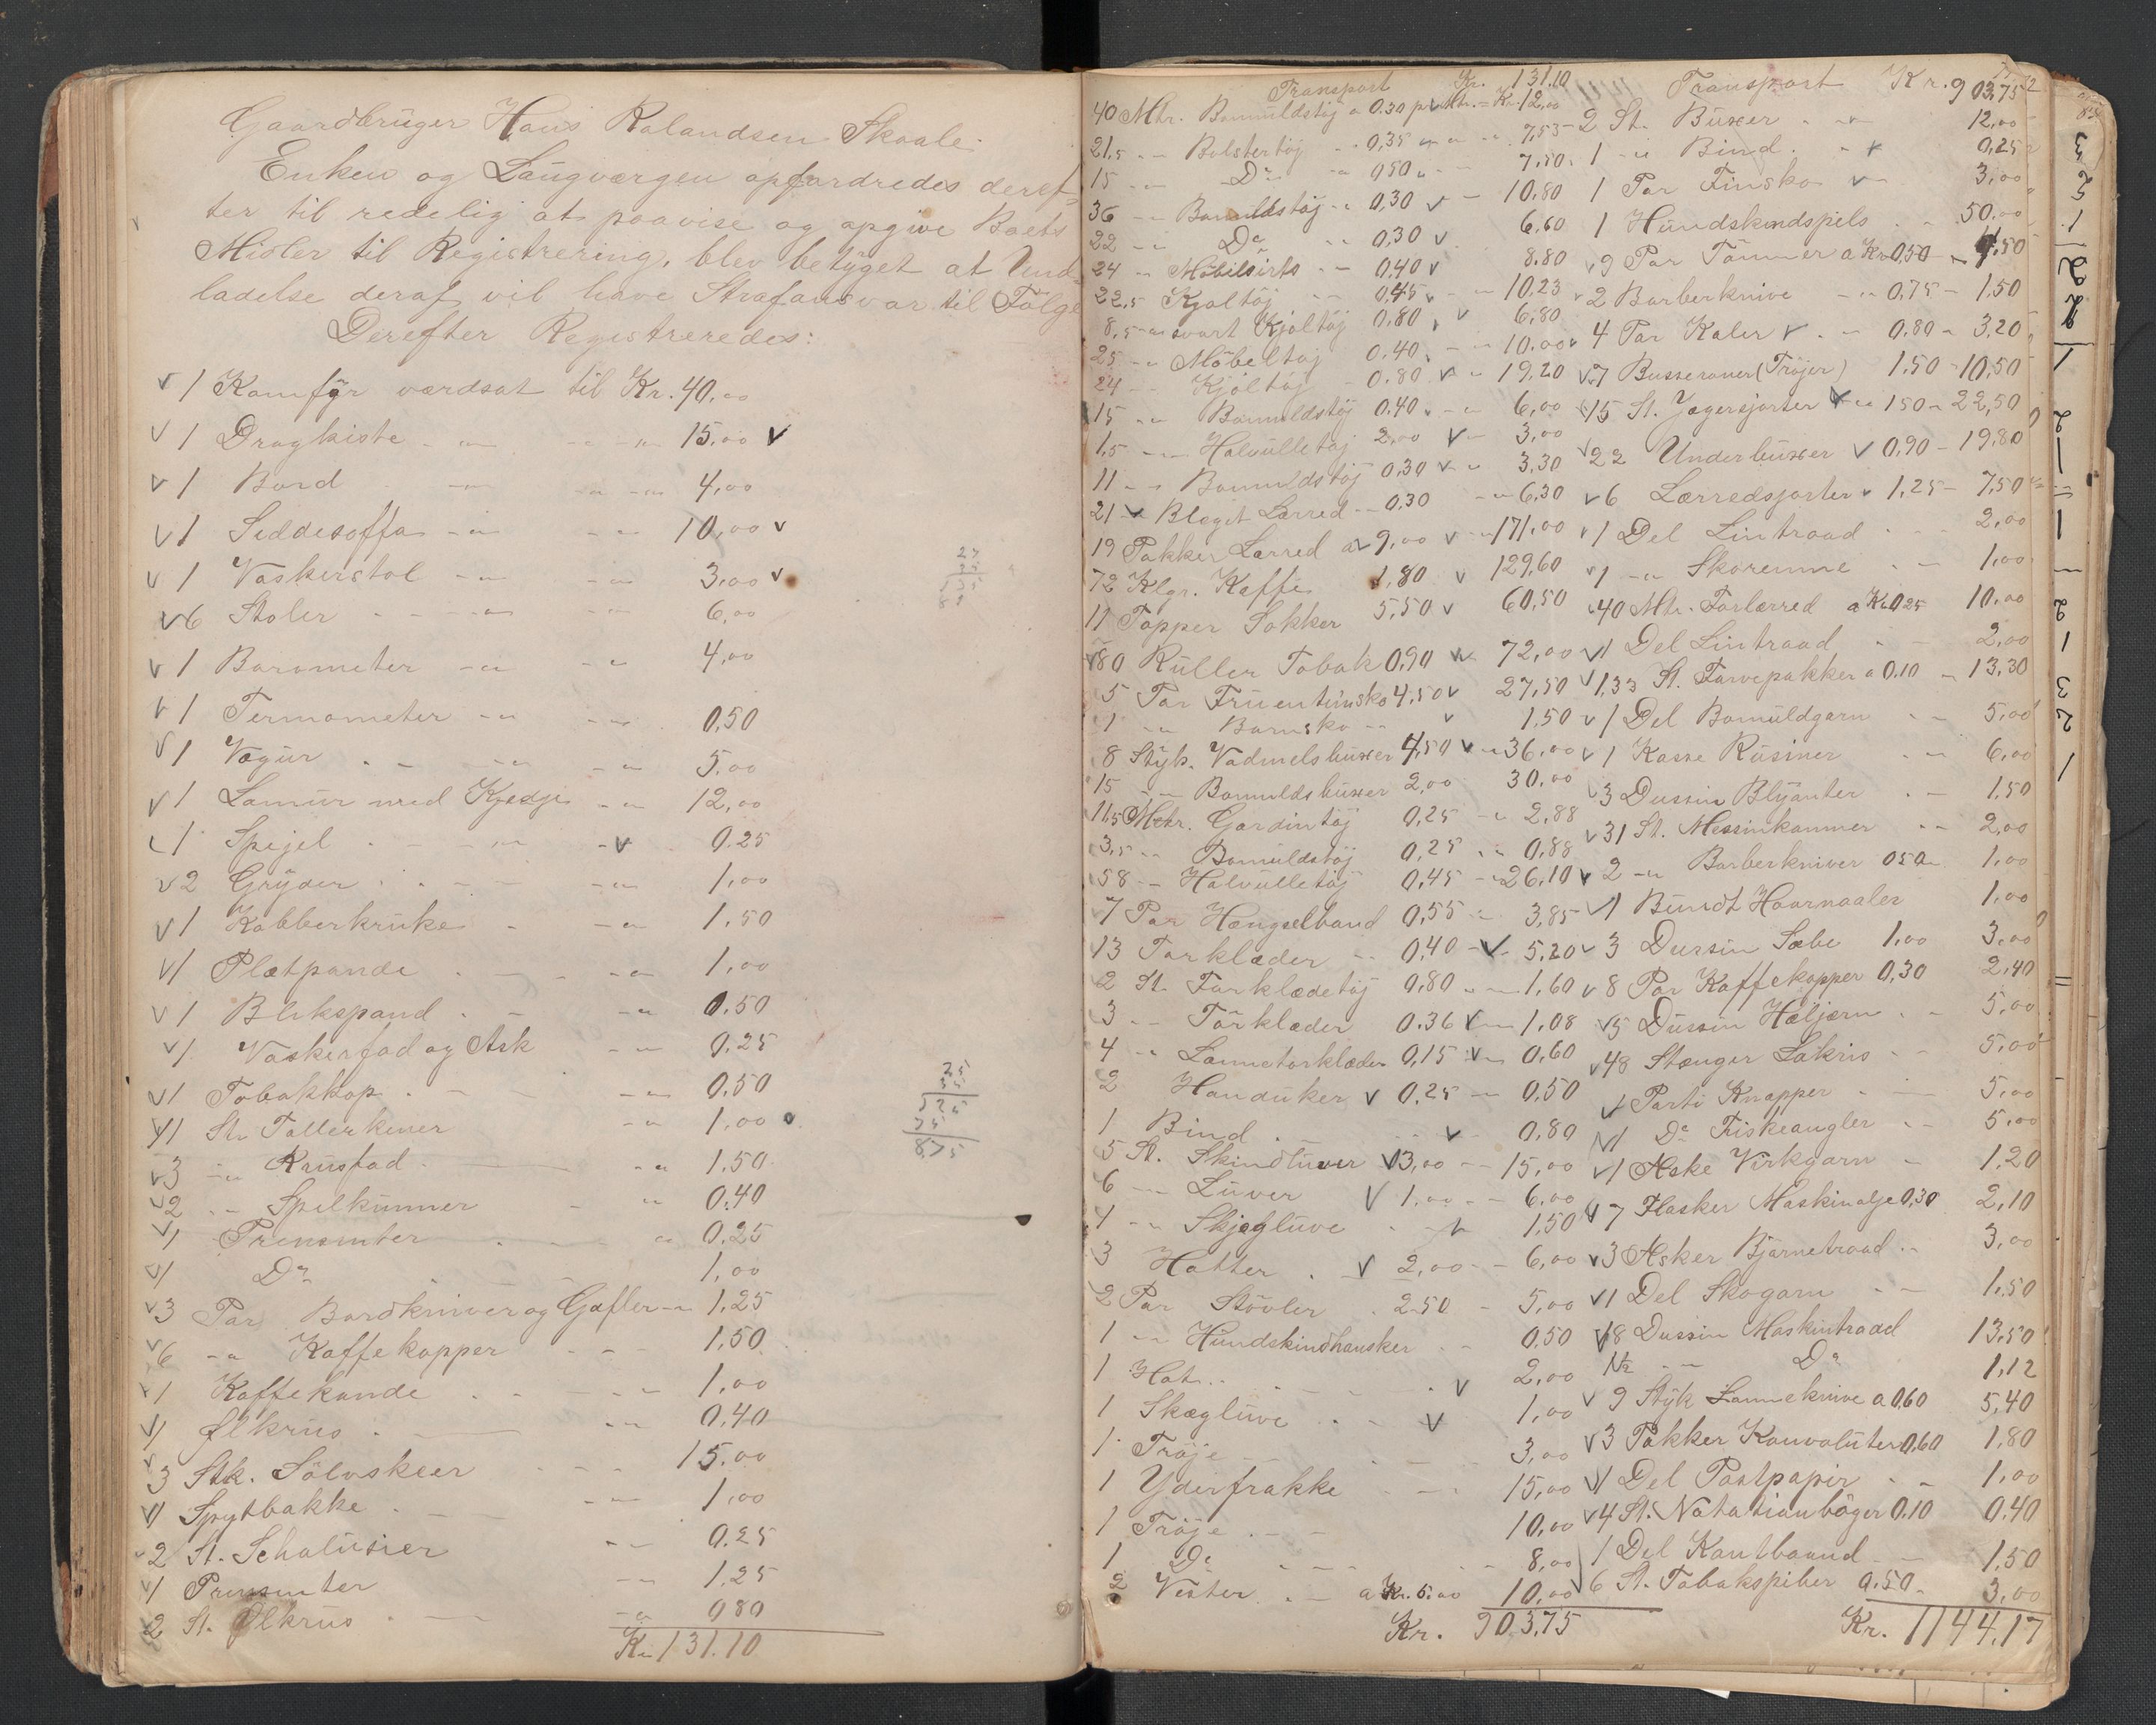 Gaardbrüger Hans Rolandsen Skaale.
Enken og Laugværgen opfordredes deref-
ter til redelig at paavise og opgive Boets
Midler til Registrering, blev betyget at Und-
ladelse deraf vil have Strafansvar til Følge
Derefter Registreredes:
1 Komfyr værdsat til Kr. 40,00
1 Dragkiste 15,00
1 Bord 4,00
1 Siddesoffa 10,00
1 Vaskerstol 3,00
6 Stoler 6,00
1 Barometer 4,00
1 Termometer 0,50
1 Vægür 5,00
1 Lomür med Kjedje 12,00
1 Spejel 0.25
2 Gryder 1,00
1 Kobberkruke 1,50
1 Plætpande 1,00
1 Blikspand 0.50
1 Vaskerfad og Ask 0,25
1 Tobakkop 0,50
1 St. Tallerkener 1,00
3 Krusfad 1,50
2 Spilkummer 0,40
1 Presenter 0,25
1 Do 1,00
3 Par Bordkniver og Gafler 1,25
6 Kaffekopper 1,50
1 Kaffekande 1,00
1 Ølkrus 0,40
3 Stk. Sølvskeer 15.00
1 Spytbakke 1,00
2 St. Schalusier 0,25
1 Presenter 1,25
2 St. Ølkrus 0 80
Kr 131.10
Transport Kr. 131.10
40 Mtr. Bomuldstøj a 0.30 pr. Mtr. = Kr 12,00
21,5 Bolstertøj 0,35 7,53
15 Do 0 50 7,50
36 Bomuldstøj 0,30 10,80
22 Do 0,30 6,60
24 Möbilsirts 0,40 8.80
22,5 Kjoltøj 0,45 10,23
8,5 svart Kjoltøj 0,80 6,80
25 Möbeltøj 0.40 10.00
24 Kjoltøj 0.80 19,20
15 Bomuldstøj 0,40 6,00
1,5 Halvülletøj 2,00 3,00
11 Bomuldstøj 0,30 3,30
21 Bleget Lærred 0,30 6,30
19 Pakker Lærred a 9,00 171,00
72 Klgr. Kaffe 1,80 129,60
11 Topper Sokker 5,50 60,50
80 Rüller Tobak 0,90 72,00
5 Par Früentimsko 4,50 27,50
1 Barnsko 1,50
8 Styk. Vadmelsbuxer 4,50 36,00
15 Bomuldsbuxer 2,00 30,00
11,5 Mtr. Gardintøj 0,25 2,88
3,5 Bomuldstøj 0,25 0,88
58 Halvülletøj 0,45 26,10
7 Par Hængselbaand 0,55 3,85
13 Torklæder 0,40 5,20
2 St. Forklædetøj 0,80 1,60
3 Törklæder 0.36 1,08
4 Lommetorklæder 0,15 0,60
2 Handüker 0,25 0,50
1 Bind 0,80
5 St. Skindluver 3,00 15,00
6 Lüver 1,00 6,00
1 Skjægluve 1,50
3 Hatter 2,00 6,00
2 Par Støvler 2.50 5,00
1 Hündskindhansker 0,50
1 Hat 2,00
1 Skægluve 1,00
1 Trøje 3,00
1 Yderfrakke 15,00
1 Trøje 10,00
1 Do 8,00
2 Vester a Kr. 5.00 10,00
Kr. 903,75
Transport Kr. 903,75
2 St. Büxer 12,00
1 Bind 0,25
1 Par Finsko 3,00
1 Hündskindspels 50,00
9 Par Tømmer a Kr 0,50 4,50
2 Barberknive 0,75 1,50
4 Par Kaler 0,80 3,20
7 Busseroner (Trøjer) 1,50 10,50
15 St. Jægersjorter 1 50 22,50
22 Underbüxer 0,90 19,80
6 Lærredsjorter 1,25 7,50
1 Del Lintraad 2,00
1 Skoremme 1,00
40 Mtr. Forlærred a Kr 0 25 10,00
1 Del Lintraad 2,00
1,33 St. Farvepakker a 0.10 13,30
1 Del Bomüldgarn 5,00
1 Kasse Rüsiner 6,00
3 Dussin Blyanter 1,50
31 St. Messinkammer 2,00
2 Barberkniver 0 50 1,00
1 Bundt Haarnaaler 1,00
3 Dussin Sæbe 1,00 3,00
8 Par Kaffekopper 0,30 2,40
5 Dussin Hæljern 5,00
48 Stænger Lakris 5,00
1 Parti Knapper 5,00
1 Do Fiskeangler 5,00
1 Æske Virkgarn 1,20
7 Flasker Maskinolje 0,30 2,10
3 Æsker Bjørnetraad 3,00
1 Del Skogarn 1,50
18 Dussin Maskintraad 13,50
1/2 Do 1,12
9 Styk Lommeknive a 0,60 5,40
3 Pakker Konvoluter 0,60 1,80
1 Del Postpapir 1,00
4 St. Notationbøger 0.10 0,40
1 Del Kantbaand 1,50
6 St. Tobakspiber 0.50 3,00
Kr. 1144.17